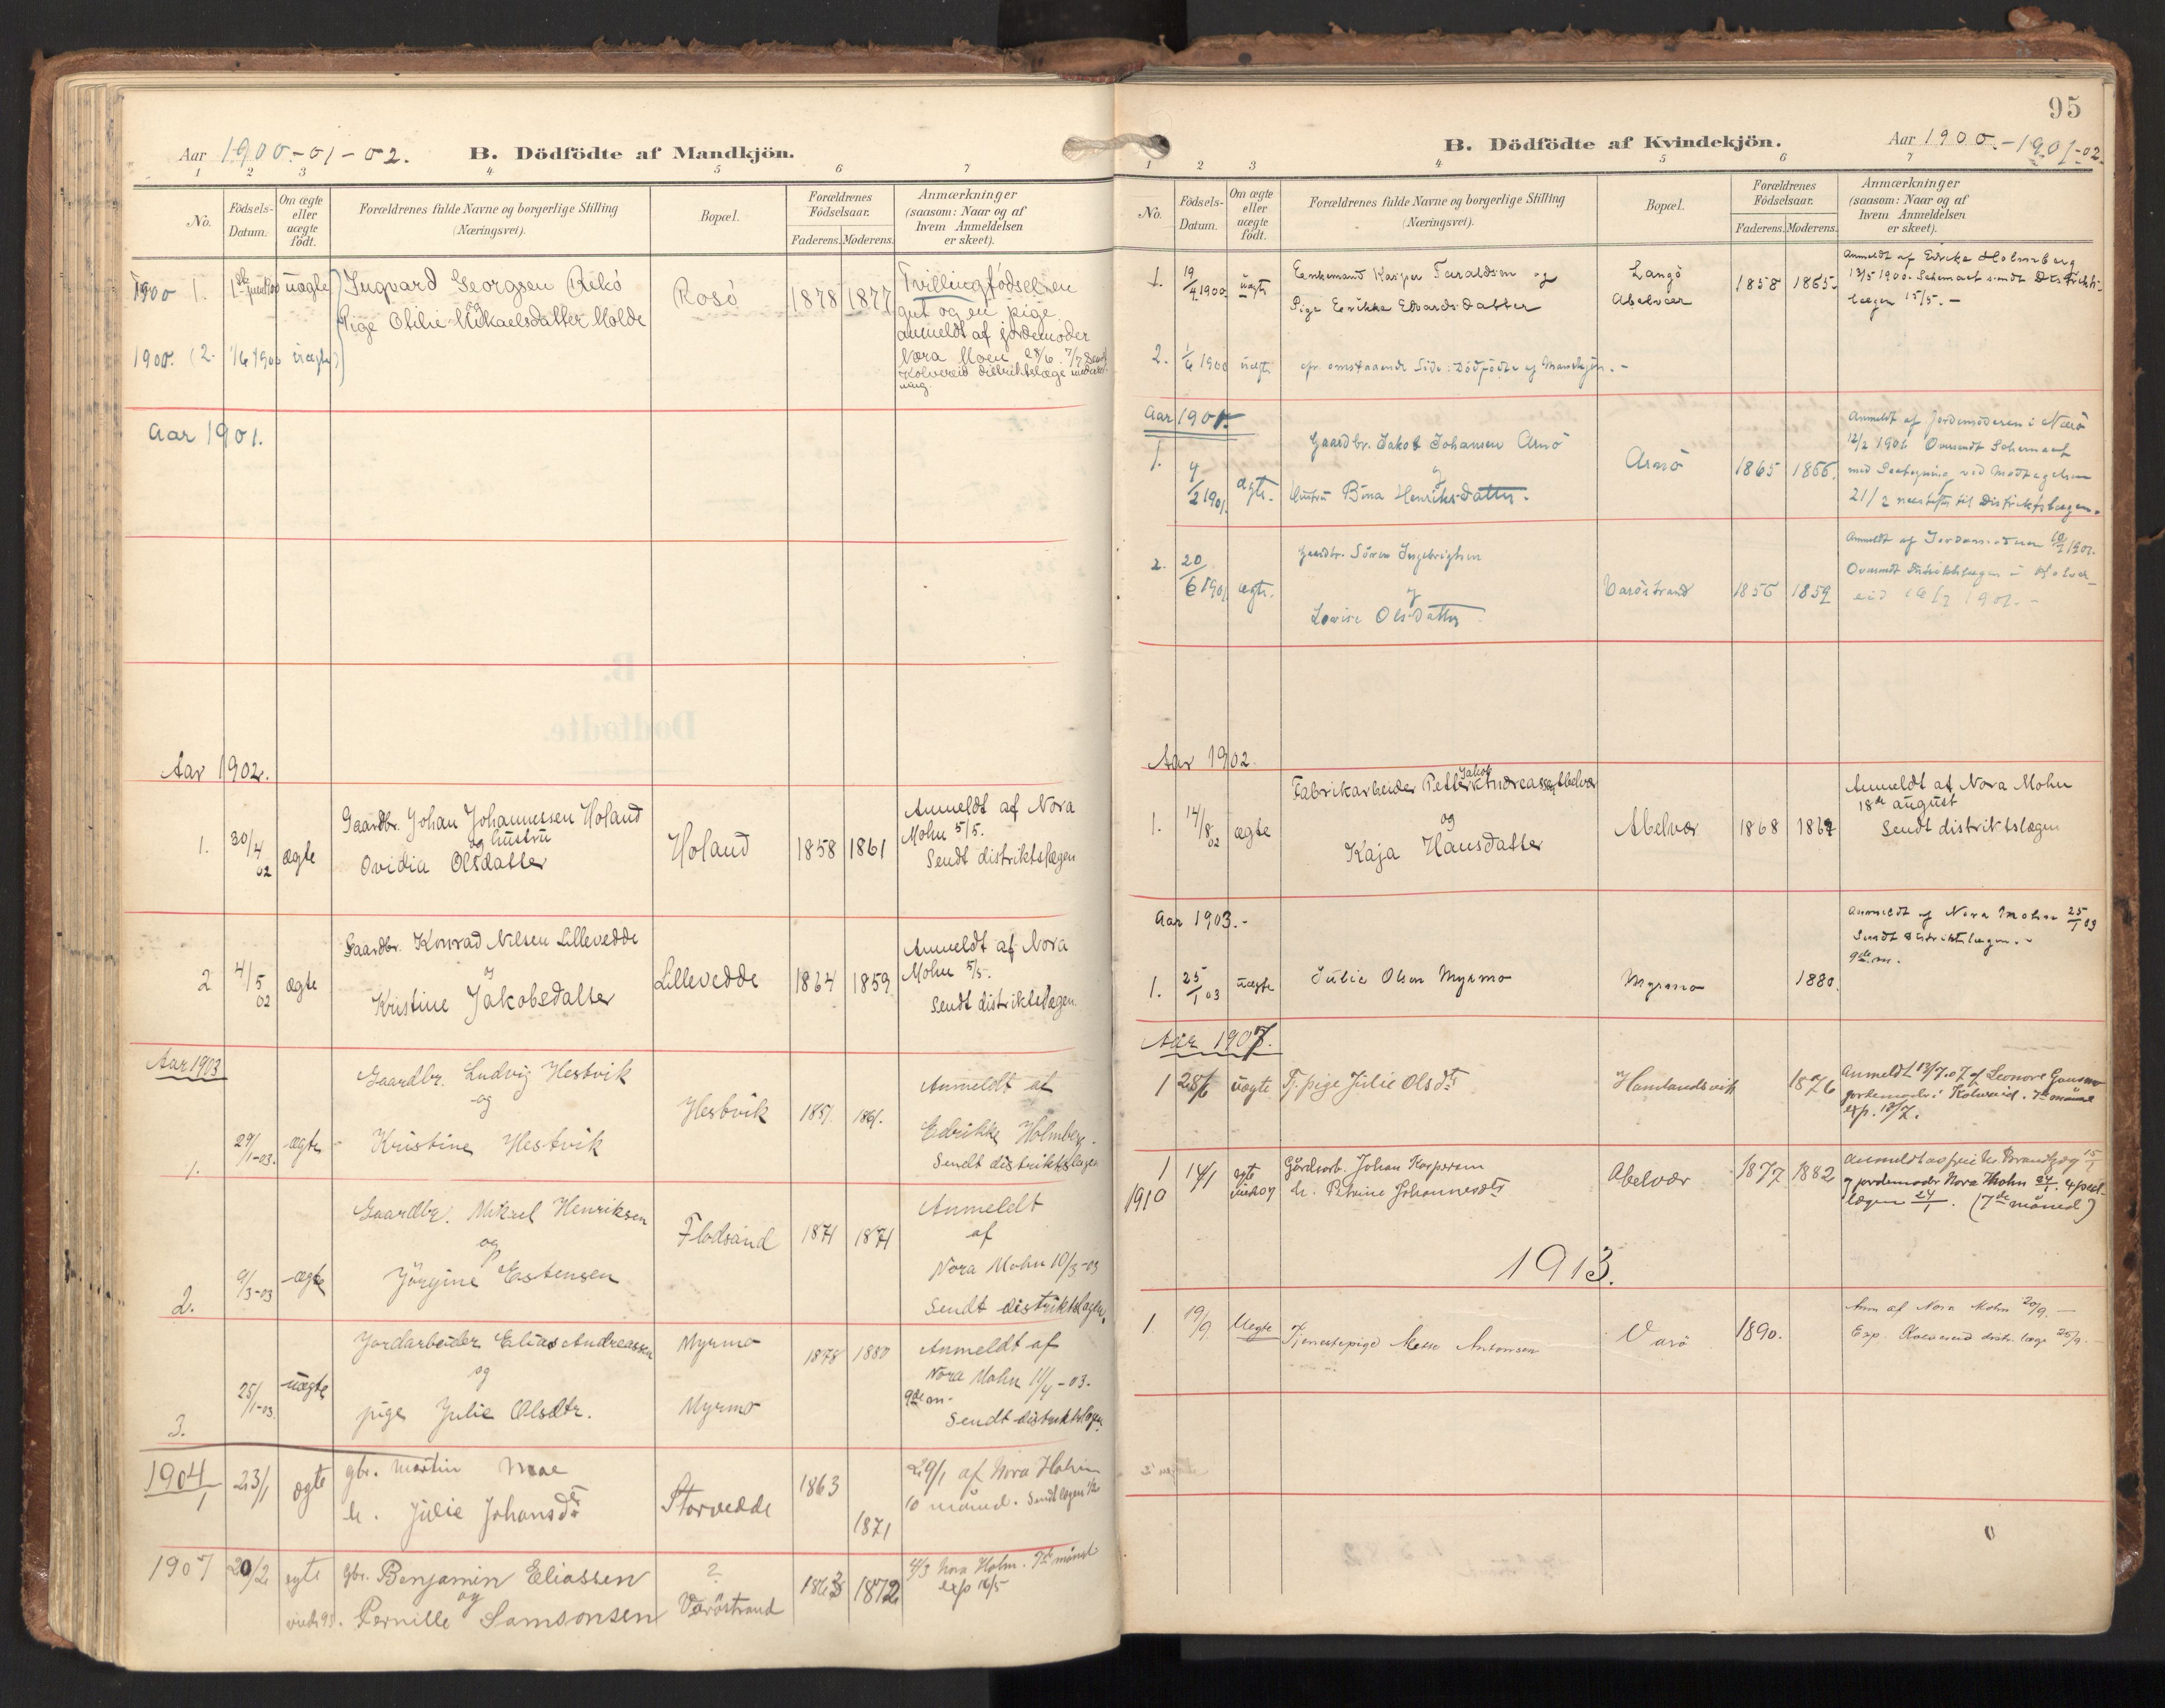 Aar 1900.-01-02. B. Dödfödte af Mandkjön.
1 2 3 4 5 6 7
No.
Födsels-Datum.
Om ægte eller uægte födt.
Forældrenes fulde Navne og borgerlige Stilling (Næringsvei).
Bopæl.
Forældrenes Födselsaar.
Faderens. Moderens.
Anmærkninger (saasom: Naar og af hvem Anmeldelsen er skeet).
1900 1. uægte Ingvard Georgsen Rosö 1878 1877
Tvillingfödsel en
gut og en pige
anmeldt af jordemoder
Pige Otilie Mikaelsdatter Molde
1900. 2. 1/6 1900 uægte
Nora Moen 28/6. 7/7 sendt
Kolvereid distriktslæge
Aar 1901.
Aar 1902.
1. 30/4 02 ægte
Gaardbr. Johan Johannessen Holand
og Hustru
Ovidia Olsdatter
Holand 1858 1861
Anmeldt af Nora
Mohn 5/5.
Sendt distriktslægen
2 4/5 02 ægte
Gaardbr. Konrad Nilsen Lillevedde
og
Kristine Jakobsdatter
Lillevedde 1864 1859
Anmeldt af Nora
Mohn 5/5.
Sendt distriktslægen
Aar 1903
1. 29/1-03. ægte
Gaardbr. Ludvig Hestvik
og
Kristine Hestvik
Hestvik 1851. 1861.
Anmeldt af
Edrikke Holmberg.
Sendt distriktslægen
2. 9/3-03 ægte
Gaardbr. Mikael Henriksen
og
Jörgine Estensen
Flodsand 1871 1871
Anmeldt
af
Nora Mohn 10/3-03
Sendt distriktslægen.
3. 25/1-03. uægte
Jordarbeider Elias Andreassen
og
pige Julie Olsdtr.
Myrmo
Myrmo
1878 1880
Anmeldt af
Nora Mohn 11/4-03.
9de m.
Sendt distriktslægen
1904 1 23/1 ægte
gbr. Martin Moe
h. Julie Johansdtr
Storvedde 1863 1871
29/1 af Nora Mohn
10 måned. Sendt lægen
1907 20/2 egte
gbr. Benjamin Eliassen
og
Pernille Samsonsen
?
Varöstrand
1863 1872
4/3 Nora Mohn. 7de månd.
exp 16/5
95
B. Dödfödte af Kvindekjön. Aar 1900.-1901-02.
1 2 3 4 5 6 7
No.
Födsels-Datum.
Om ægte eller uægte födt.
Forældrenes fulde Navne og borgerlige Stilling (Næringsvei).
Bopæl.
Forældrenes Födselsaar.
Faderens. Moderens.
Anmærkninger (saasom: Naar og af hvem Anmeldelsen er skeet).
1. 19/4 1900. uægte
Enkemand Kasper Taraldsen og
Pige Erikka Edvardsdatter
Langö
Abelvær
1858 1865.
Anmeldt af Edrika Holmberg
13/5 1900. Schemaet sendt Distrikts-
lægen 15/5.-
2. 1/6 1900 uægte
cfr. omstaaende Side: Dödfödte af Mandkjön.-
Aar 1901.
1. 4/2 1901. ægte.
Gaardbr. Jakob Johansen Arnö
og
Hustru Bina Henriksdatter.
Arnö 1865 1866.
Anmeldt af Jordemoderen i Nærö
12/2 1901. Oversendt Schemaet
med Paategning ved Modtagelsen
21/2 næstefter til Distriktslægen.
2. 20/6 1901. ægte.
Gaardbr. Sören Ingebrigtsen
og
Lovise Olsdatter
Varöstrand 1856 1859
Anmeldt af Jordemoderen 10/7 1901.
Oversendt distriktslægen i Kolver-
eid 16/7 1901.-
Aar 1902.
1. 14/8 02 ægte
Fabrikarbeider Petter Jakob Andreassen Abelvær
og
Kaja Hansdatter
Abelvær 1868 1867
Anmeldt af Nora Mohn
18de august
Sendt distriktslægen
Aar 1903.-
1. 25/1 03 uægte
Julie Olsen Myrmo
Myrmo 1880.
Anmeldt af Nora Mohn 25/1 03
Sendt distriktslægen.-
9de m.
Aar 1907.
1 28/6 uægte
Tj. pige Julie Olsdtr
Hamlandsvik 1876
Anmeldt 13/7.07 af Leonore
jordemoder i Kolvereid. 7de måned
exp. 18/7.
1 1910 14/1 ægte
Gårdarb. Johan Kaspersen
h. Petrine Johannesdtr
Abelvær 1877 1882
15/1
og jordemoder Nora Mohn 24/1.
lægen 24/1. (7de måned)
1913.
1. 19/9. Uegte
Tjenestepige Antonsen
Varö 1890.
Anm af Nora Mohn 20/9.-
Exp. Kolvereid distr. læge 25/9.-